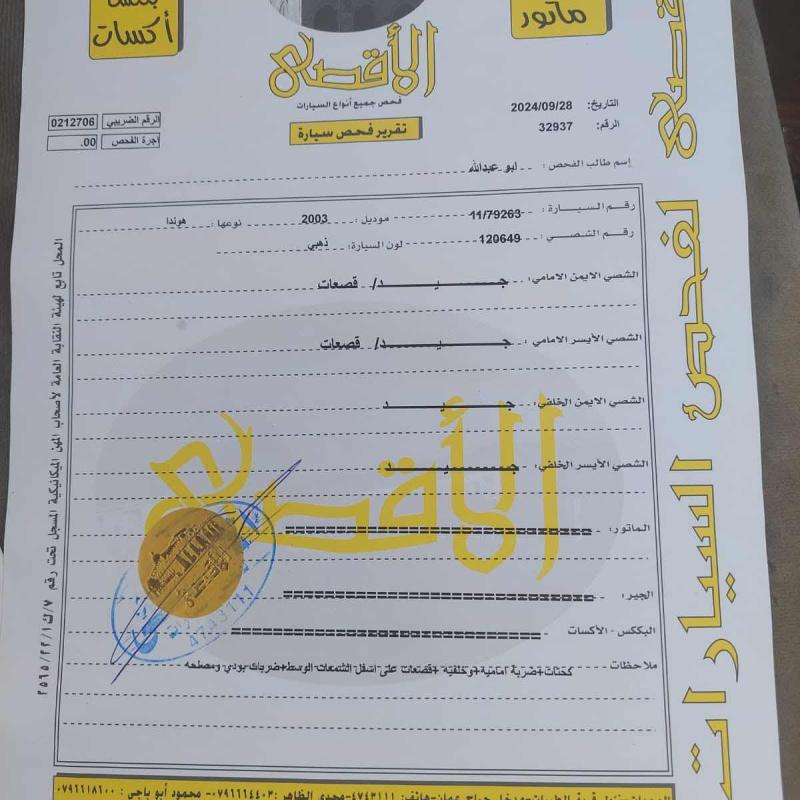 أكسات
ماتور
الأقصى
فحص جميع أنواع السيارات
تقرير فحص سيارة
التاريخ: 2024/09/28
الرقم: 32937
الرقم الضريبي 0212706
أجرة الفحص .00
إسم طالب الفحص : ابو عبدالله
رقم السيارة : 11/79263 موديل : 2003 نوعها : هوندا
رقم الشصي : 120649 لون السيارة : ذهبي
الشصي الايمن الامامي : جيد / قصعات
الشصي الأيسر الامامي : جيد / قصعات
الشصي الايمن الخلفي : جيد
الشصي الأيسر الخلفي : جيد
الأقصى
الماتور :
الجير :
البككس - الأكسات
ملاحظات كحتات+ضربة امامية+وخلفية +قصعات على اسفل الشمعات الوسط+ضربات بودي ومصلحه
4743111
المحل تابع لهيئة النقابة العامة لأصحاب المهن الميكانيكية المسجل تحت رقم ٧/ك١/٢٢/٢٥٦٥
لفحص السيارات
هاتف: ٤٧٤٣١١١-مجدي الظاهر : ٠٧٩٦١١٤٤٠٣- محمود أبو ياجي : ٠٧٩٦١١٨٦٠٠